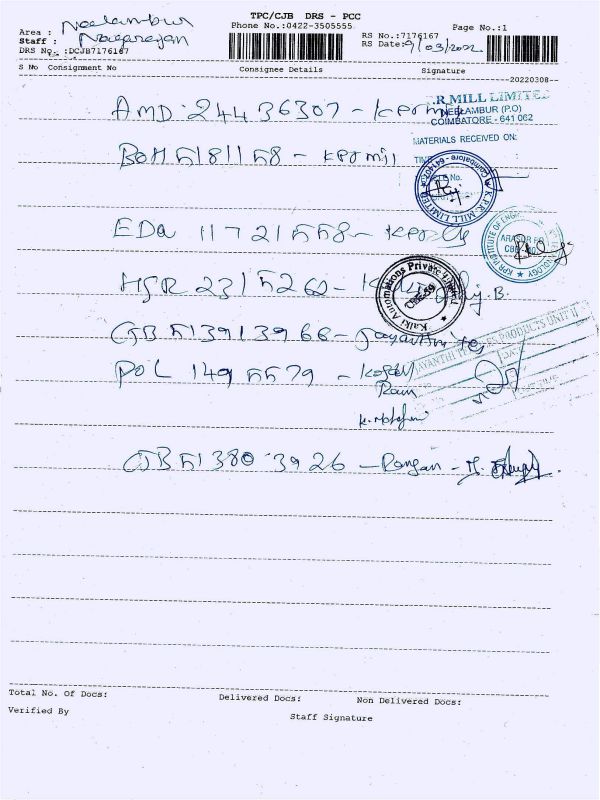 TPC/CJB DRS - PCC
Area : Neelambur
Phone No.:0422-3505555
Page No.:1
Staff : Nagarajan
RS No.:7176167
DRS No. :DCJB7176167
RS Date: 9/03/2022
S No Consignment No Consignee Details Signature
20220308
AMD 24436307 - KPR mill
.R.MILL LIMITED
NEELAMBUR (P.O)
COIMBATORE - 641 062
MATERIALS RECEIVED ON:
BOM 5181158 - KPR mill
K.P.R. MILL LIMITED
EDA 11721558 - KPR
KPR INSTITUTE OF ENG
HJR 2315260 - Kalki
Kalki Automations Private Limited
CBE-59
CJB 513913968 - Jayanthi
JAYANTHI PRODUCTS UNIT II
POL 1495579 -
Ram
CJB 51380 3926 - Rangan -
Total No. Of Docs: Delivered Docs: Non Delivered Docs:
Verified By
Staff Signature